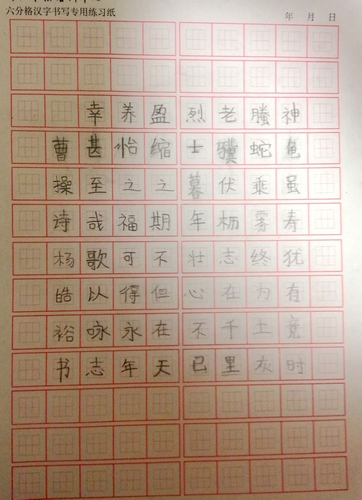 六分格汉字书写专用练习纸
年 月 日
神龟虽寿犹有竟时
螣蛇乘雾终为土灰
老骥伏枥志在千里
烈士暮年壮心不已
盈缩之期不但在天
养怡之福可得永年
幸甚至哉歌以咏志
曹操诗杨皓裕书